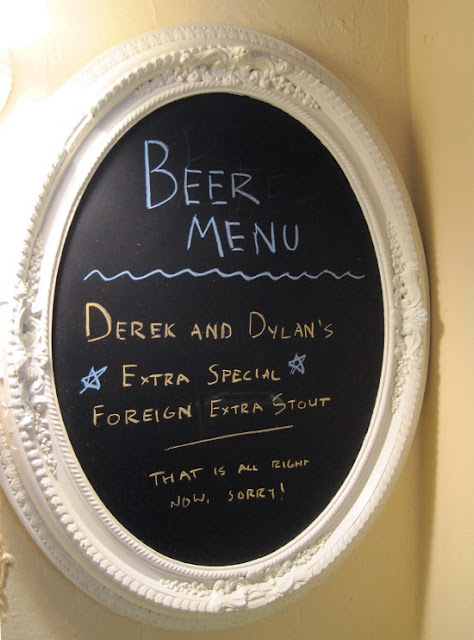 BEER
MENU
DEREK AND DYLAN'S
EXTRA SPECIAL
FOREIGN EXTRA STOUT
THAT IS ALL RIGHT
NOW, SORRY!